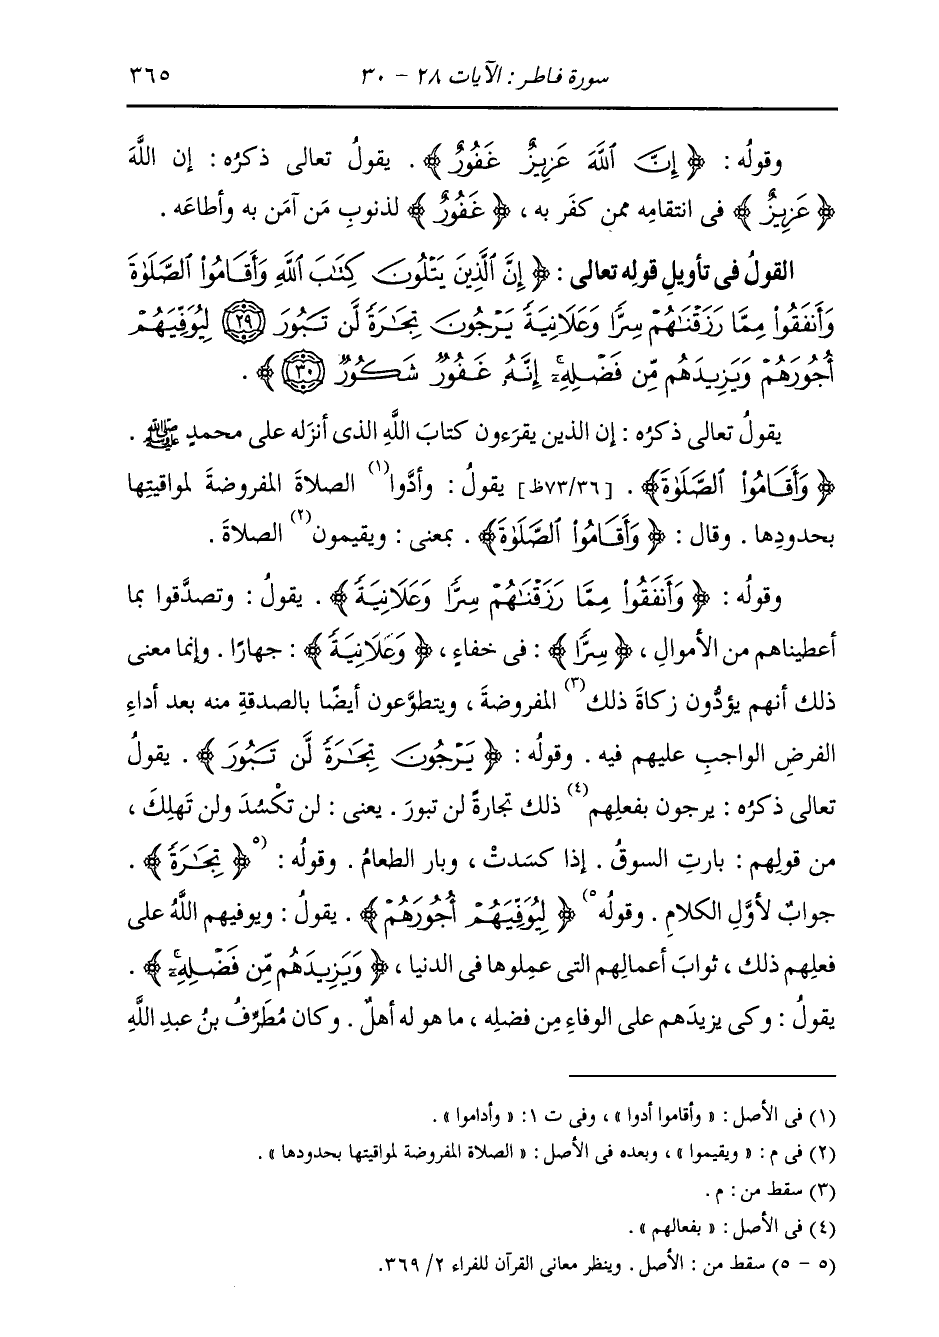 سورة فاطر : الآيات ٢٨ - ٣٠ ٣٦٥
وقولُه : ﴿ إِنَّ اللَّهَ عَزِيزٌ غَفُورٌ ﴾ . يقولُ تعالى ذكرُه : إن اللَّهَ
﴿ عَزِيزٌ ﴾ فى انتقامِه ممن كفَر به ، ﴿ غَفُورٌ ﴾ لذنوبِ مَن آمَن به وأطاعَه .
القولُ فى تأويلِ قولِه تعالى : ﴿ إِنَّ الَّذِينَ يَتْلُونَ كِتَٰبَ اللَّهِ وَأَقَامُوا۟ الصَّلَوٰةَ
وَأَنفَقُوا۟ مِمَّا رَزَقْنَٰهُمْ سِرًّا وَعَلَانِيَةً يَرْجُونَ تِجَٰرَةً لَّن تَبُورَ (٢٩) لِيُوَفِّيَهُمْ
أُجُورَهُمْ وَيَزِيدَهُم مِّن فَضْلِهِۦٓ إِنَّهُۥ غَفُورٌ شَكُورٌ (٣٠) ﴾ .
يقولُ تعالى ذكرُه : إن الذين يقرَءون كتابَ اللَّهِ الذى أنزَله على محمدٍ ﷺ .
﴿ وَأَقَامُوا۟ الصَّلَوٰةَ ﴾ . [٧٣/٣٦ظ] يقولُ : وأدَّوا(١) الصلاةَ المفروضةَ لمواقيتِها
بحدودِها . وقال : ﴿ وَأَقَامُوا۟ الصَّلَوٰةَ ﴾ . بمعنى : ويقيمون(٢) الصلاةَ .
وقولُه : ﴿ وَأَنفَقُوا۟ مِمَّا رَزَقْنَٰهُمْ سِرًّا وَعَلَانِيَةً ﴾ . يقولُ : وتصدَّقوا بما
أعطيناهم من الأموالِ ، ﴿ سِرًّا ﴾ : فى خفاءٍ ، ﴿ وَعَلَانِيَةً ﴾ : جهارًا . وإنما معنى
ذلك أنهم يؤدُّون زكاةَ ذلك(٣) المفروضةَ ، ويتطوَّعون أيضًا بالصدقةِ منه بعد أداءِ
الفرضِ الواجبِ عليهم فيه . وقولُه : ﴿ يَرْجُونَ تِجَٰرَةً لَّن تَبُورَ ﴾ . يقولُ
تعالى ذكرُه : يرجون بفعلِهم(٤) ذلك تجارةً لن تبورَ . يعنى : لن تكْسُدَ ولن تَهلِكَ ،
من قولِهم : بارتِ السوقُ . إذا كسَدتْ ، وبار الطعامُ . وقولُه : (٥﴿ تِجَٰرَةً ﴾ .
جوابٌ لأوَّلِ الكلامِ . وقولُه٥) ﴿ لِيُوَفِّيَهُمْ أُجُورَهُمْ ﴾ . يقولُ : ويوفيهم اللَّهُ على
فعلِهم ذلك ، ثوابَ أعمالِهم التى عمِلوها فى الدنيا ، ﴿ وَيَزِيدَهُم مِّن فَضْلِهِۦٓ ﴾ .
يقولُ : وكى يزيدَهم على الوفاءِ مِن فضلِه ، ما هو له أهلٌ . وكان مُطَرِّفُ بنُ عبدِ اللَّهِ
(١) فى الأصل : « وأقاموا أدوا » ، وفى ت ١ : « وأداموا » .
(٢) فى م : « ويقيموا » ، وبعده فى الأصل : « الصلاة المفروضة لمواقيتها بحدودها » .
(٣) سقط من : م .
(٤) فى الأصل : « بفعالهم » .
(٥ - ٥) سقط من : الأصل . وينظر معانى القرآن للفراء ٢/ ٣٦٩.